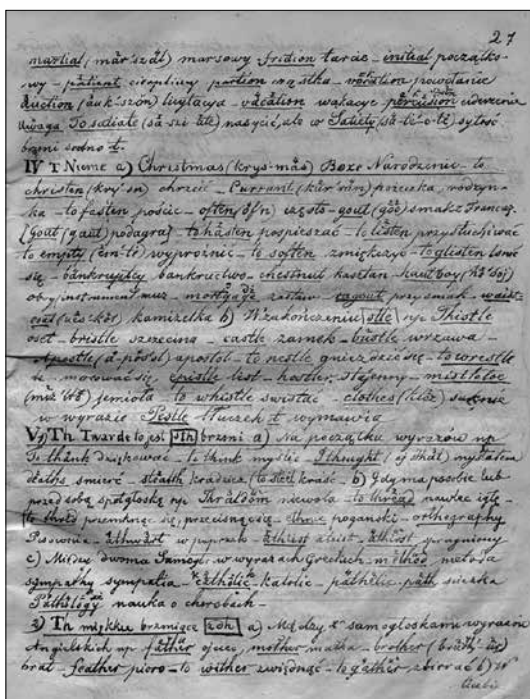 27
martial (mär'szäl) marsowy friction tarcie - initial początko-
wy - patient cierpliwy partion cząstka - vocation powołanie
Auction (äuk'szön) licytacya - vacation wakacye percussion uderzenie
Uwaga To satiate (sä-szi-äte) nasycić, ale w Satiety (sä-ti-ö-tĕ) sytość
brzmi jedno t.
IV T Nieme a) Christmas (krys-mäs) Boże Narodzenie - to
christen (krys'sn) chrzcić - Currant (kür'rän) pożeczka, rodzyn-
ka - to fasten pościć - often (öf'n) często - gout (göö) smak z Francuz.
[gout (gaut) podagra] - to hasten pospieszać - to listen przysłuchiwać
to empty (ĕm-tĕ) wypróżnić - to soften zmiękczyć - to glisten lśnić
się - bankruptcy bankructwo - chestnut kasztan - hautboy (hö'boj)
obój instrument muz - mortgage zastaw - ragout przysmak - waist
coat (ües'köt) kamizelka b) W zakończeniu stle np. Thistle
oset - bristle szczecina - castle zamek - bustle wrzawa -
Apostle (ä-pös'sl) apostoł - to nestle gnieździć się - to wrestle
mocować się, epistle list - hostler, stajenny - mistletoe
(miz'ltö) jemioła to whistle świstać - clothes (klöz) suknie
w wyrazie Pestle tłuczek t wymawia
V) Th Twarde to jest sth brzmi a) Na początku wyrazów np
To thank dziękować - to think myślić - I thought (aj thät) myślałem
death śmierć - stealth kradzież (to steal kraść - b) Gdy ma po sobie lub
przed sobą spółgłoskę np. Thraldom niewola - to thread nawlec igłę -
(to thrid przemknąć się, przecisnąć się - ethnic pogański - orthography
Pisownia - athwart w poprzek - atheist ateist - athirst spragniony
c) Między dwoma Samogł. w wyrazach Greckich - method metoda
sympathy sympatia - catholic - katolic - pathetic - path ścieżka
Pathology nauka o chorobach -
2) Th miękkie brzmiące zdh a) Między 2 samogłoskami wyrazów
Angielskich np father ojciec, mother matka - brother (bräth-ör)
brat - feather pióro - to wither zwiędnąć - to gather zbierać b) W